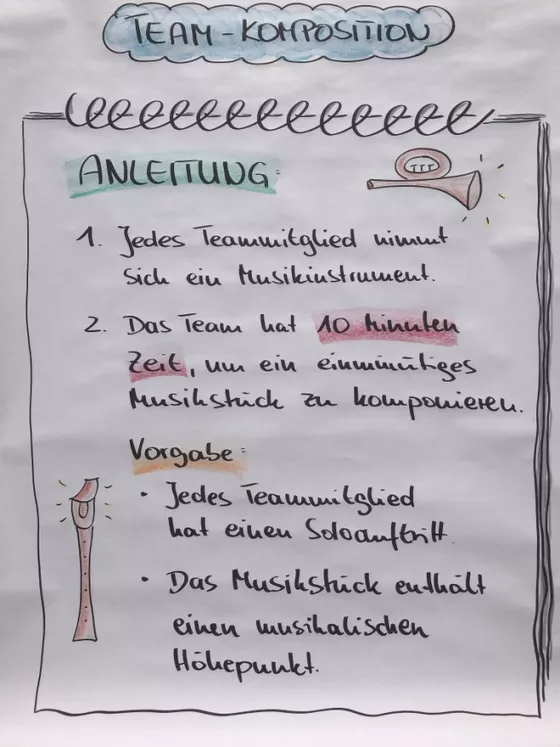 TEAM-KOMPOSITION
ANLEITUNG:
1. Jedes Teammitglied nimmt
sich ein Musikinstrument.
2. Das Team hat 10 Minuten
Zeit, um ein einminütiges
Musikstück zu komponieren.
Vorgabe:
• Jedes Teammitglied
hat einen Soloauftritt.
• Das Musikstück enthält
einen musikalischen
Höhepunkt.